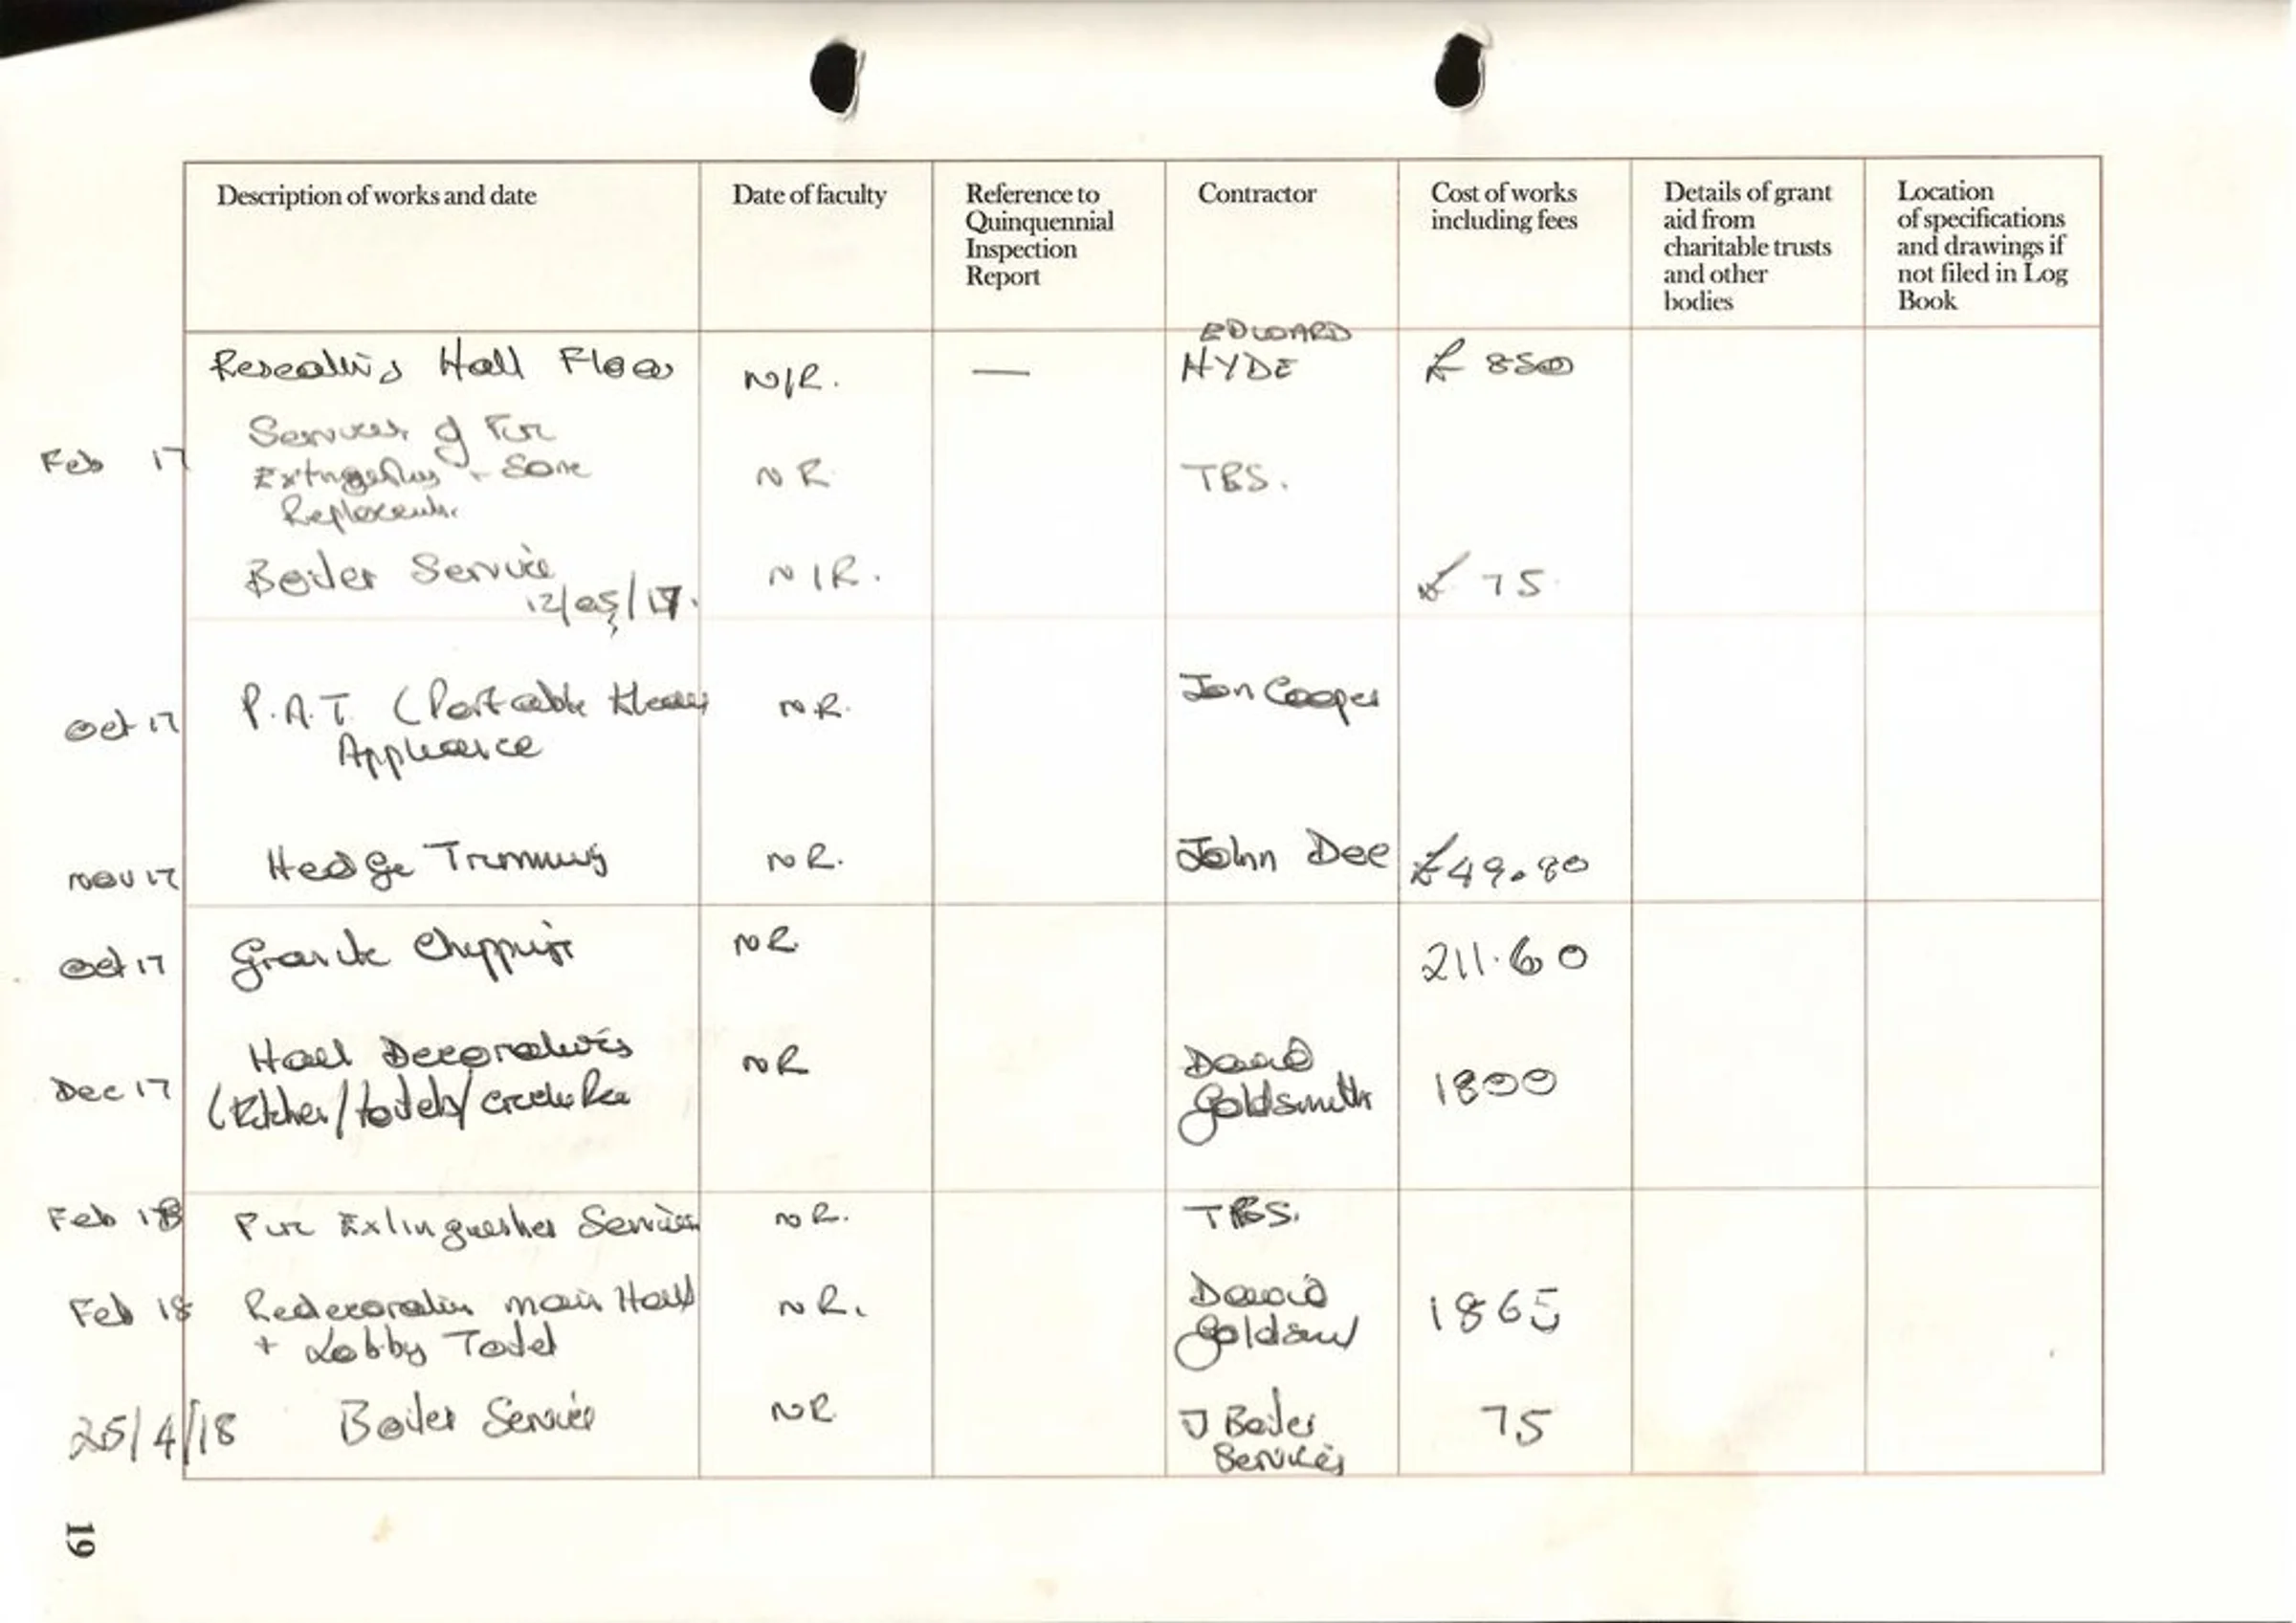 Description of works and date
Date of faculty
Reference to
Quinquennial
Inspection
Report
Contractor
Cost of works
including fees
Details of grant
aid from
charitable trusts
and other
bodies
Location
of specifications
and drawings if
not filed in Log
Book
Resealing Hall Floor N/R. — EDWARD
HYDE £ 850
Feb 17 Services of Fire
Extinguishers - Some
Replacements. NR TBS.
Boiler Service
12/05/17. N/R. £ 75
Oct 17 P.A.T. (Portable
Appliance N.R. Jon Cooper
Nov 17 Hedge Trimming NR. John Dee £49.80
Oct 17 Granite Chippings NR. 211.60
Dec 17 Hall Decorating
(Kitchen/toilets/ NR David
Goldsmith 1800
Feb 18 Fire Extinguisher Service NR. TBS.
Feb 18 Redecorating main Hall
+ Lobby Toilet NR. David
Goldsmith 1865
25/4/18 Boiler Service NR J Boiler
Services 75
19